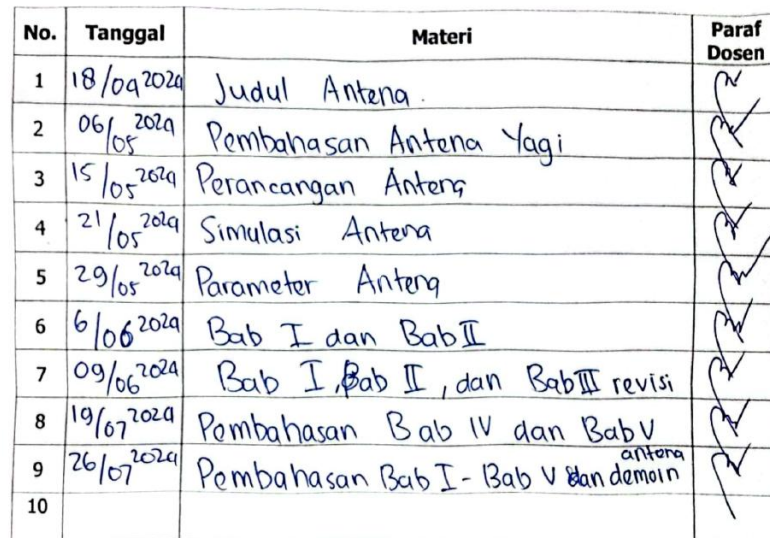 No. Tanggal Materi Paraf Dosen
1 18/04 2024 Judul Antena.
2 06/05 2024 Pembahasan Antena Yagi
3 15/05 2024 Perancangan Antena
4 21/05 2024 Simulasi Antena
5 29/05 2024 Parameter Antena
6 6/06 2024 Bab I dan Bab II
7 09/06 2024 Bab I, Bab II, dan Bab III revisi
8 19/07 2024 Pembahasan Bab IV dan Bab V
9 26/07 2024 Pembahasan Bab I - Bab V dan demoin antena
10